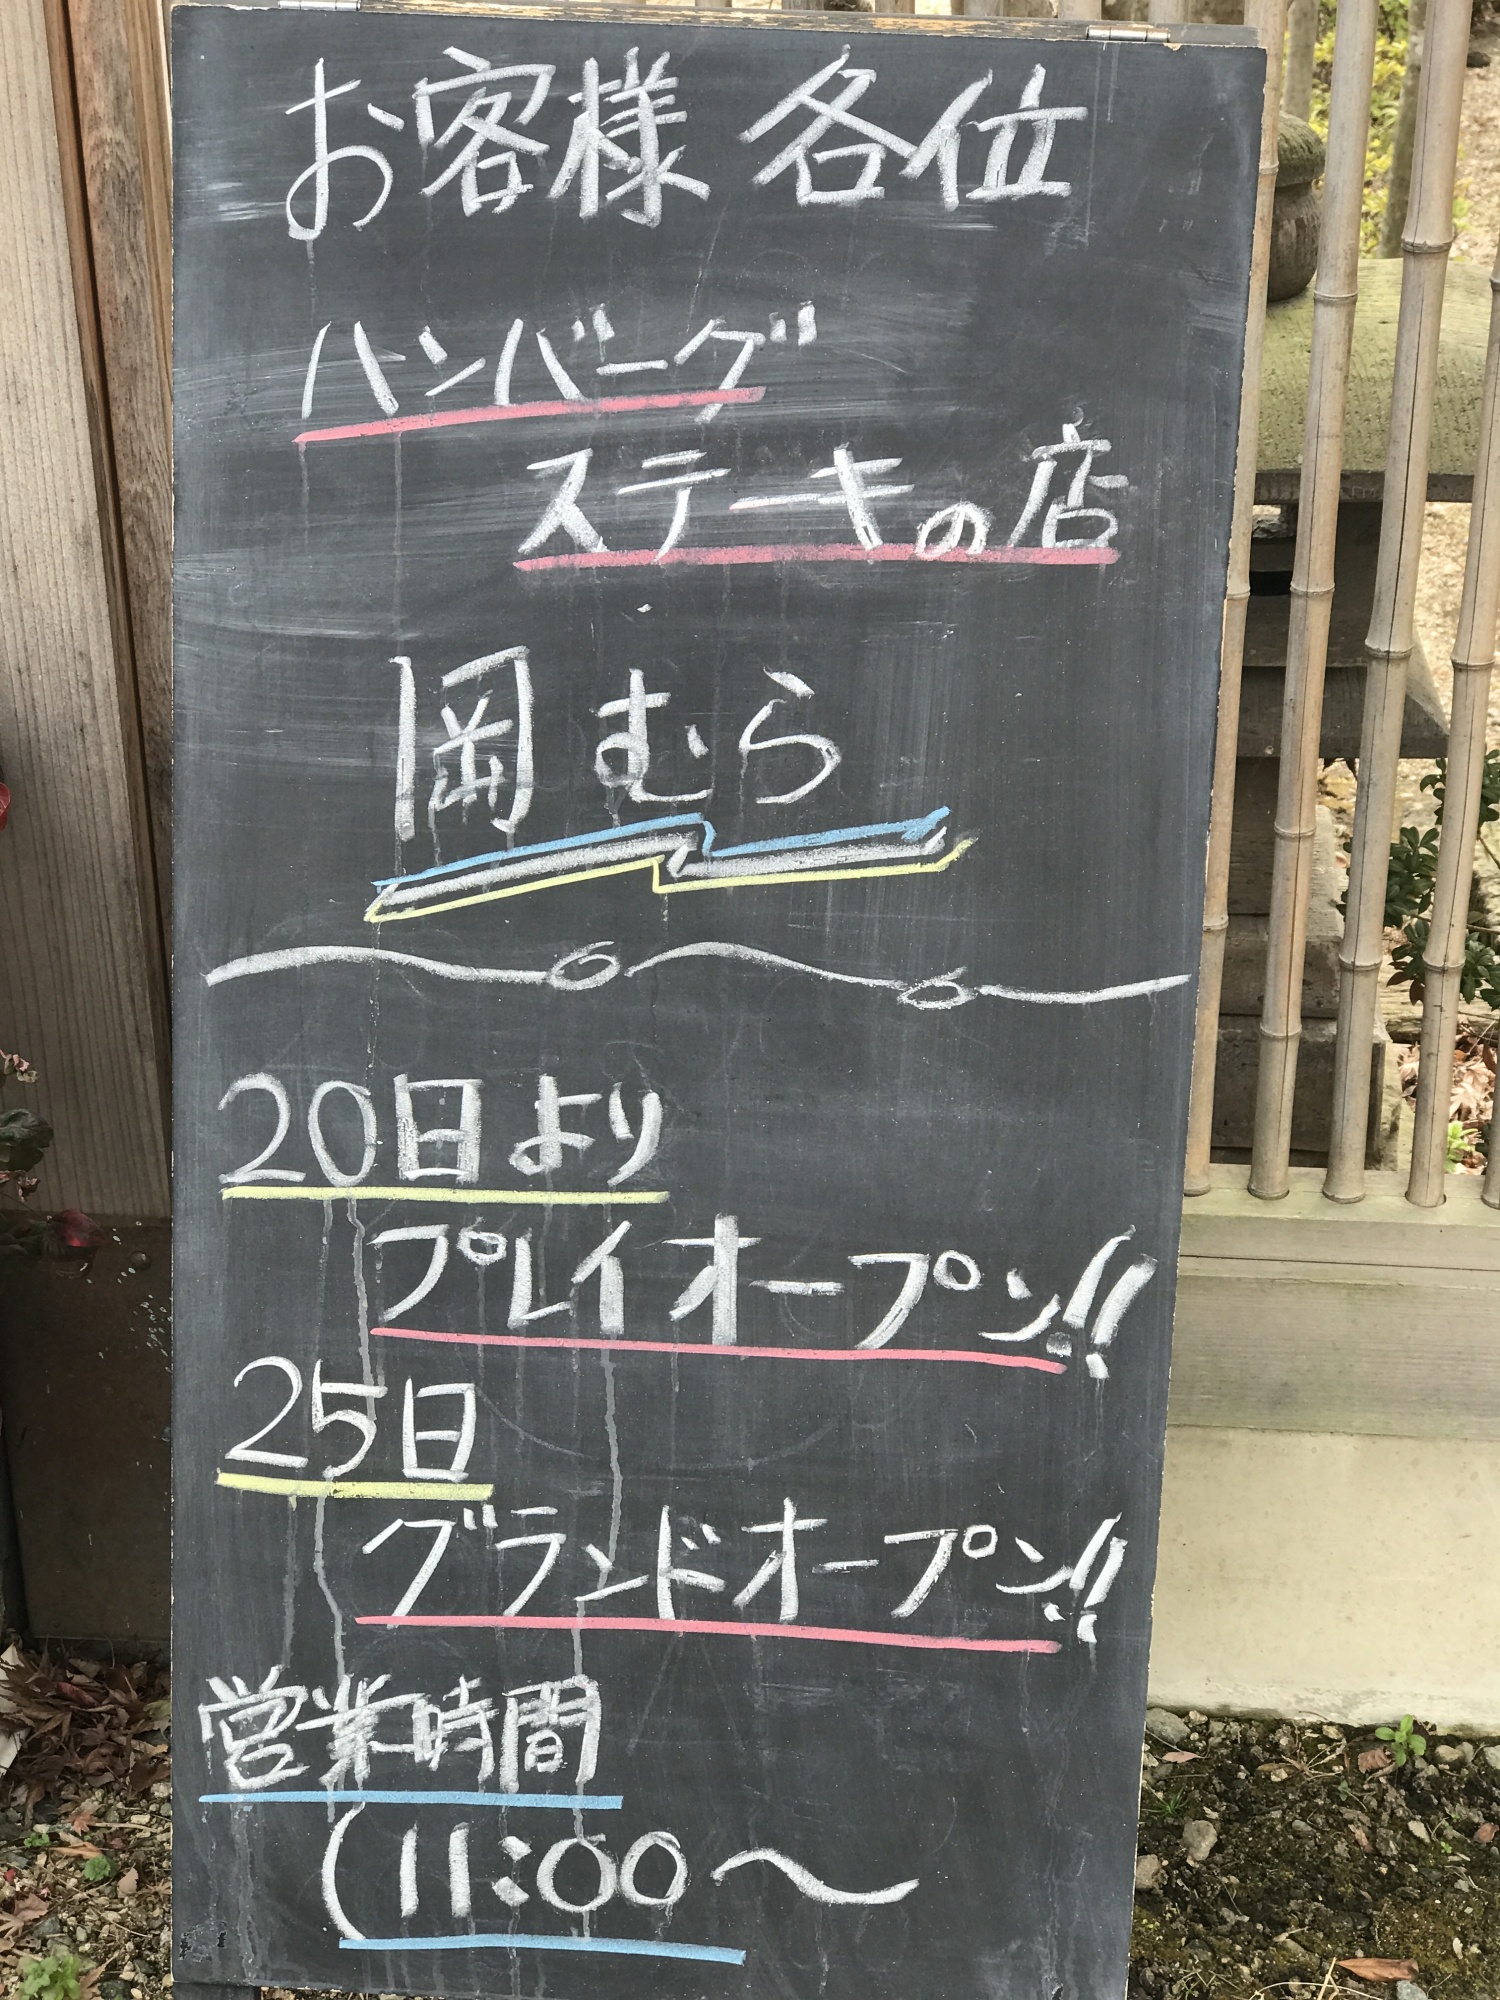 お客様 各位
ハンバーグ
ステーキの店
岡むら
20日より
プレイオープン!!
25日
グランドオープン!!
営業時間
(11:00〜